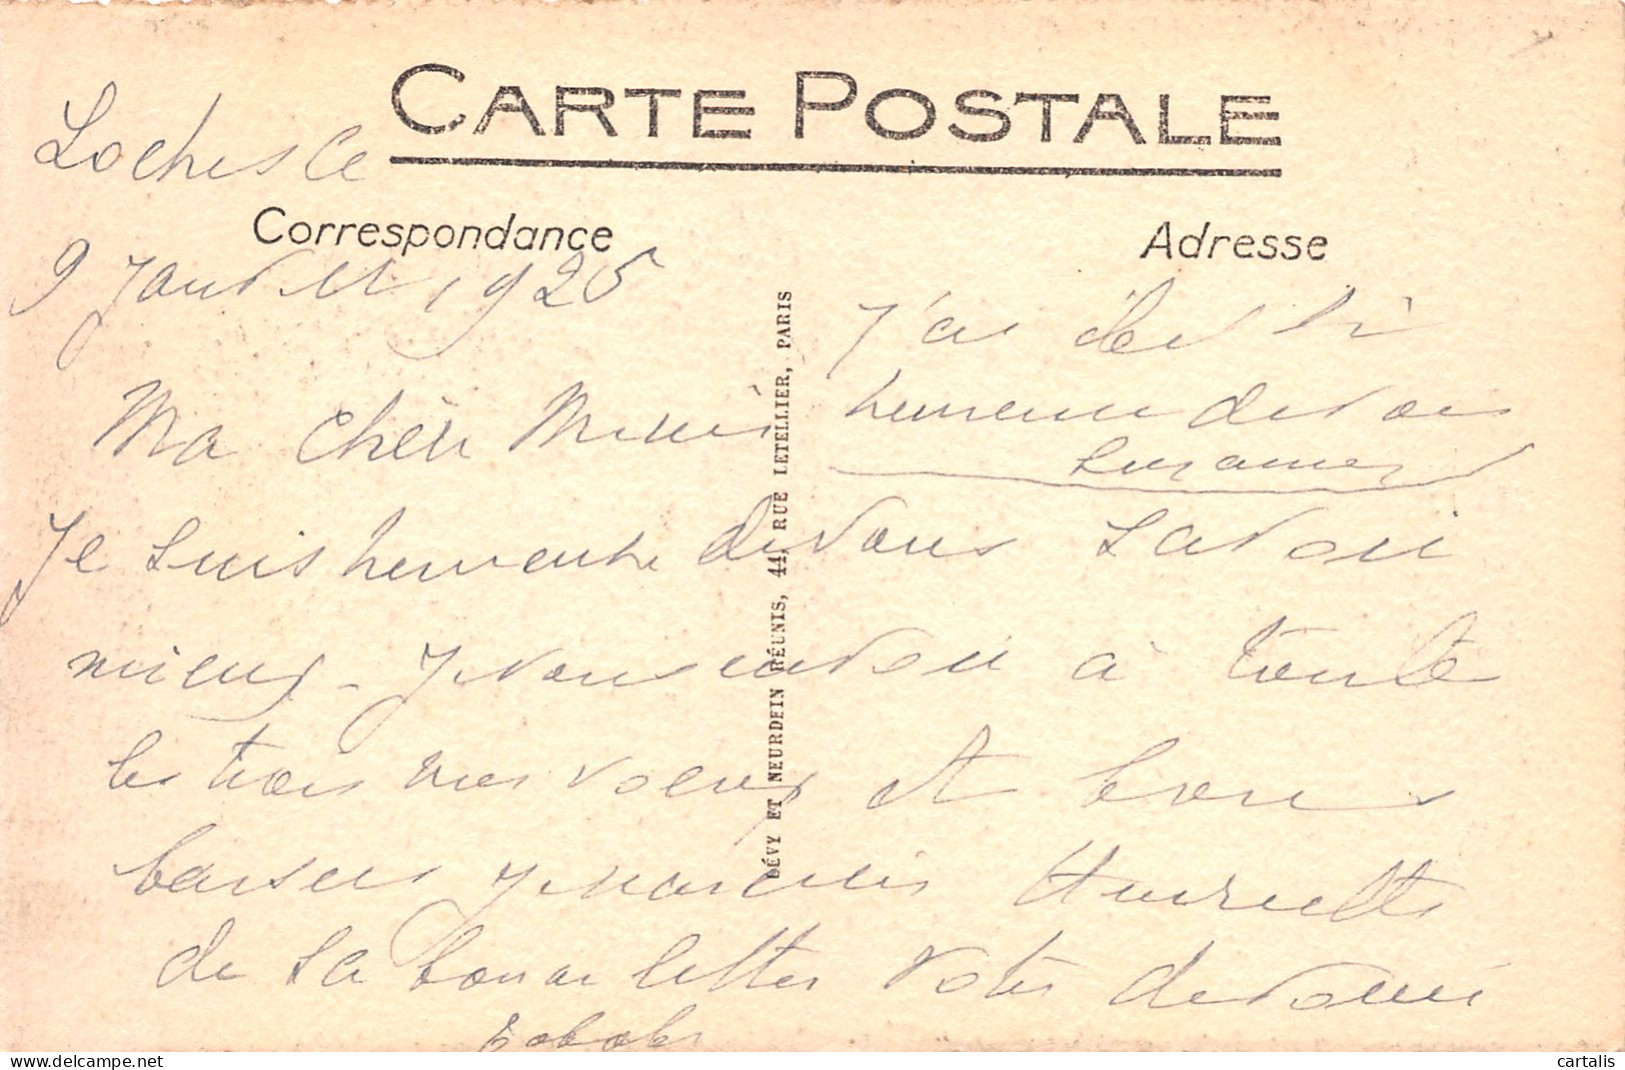 CARTE POSTALE
Correspondance
Adresse
Loches le
9 Janvier 1925
Ma chère Mimi
Je suis heureuse de vous savoir
mieux - Je vous envoie à toute
les trois mes voeux et bons
baisers Je remercie Henriette
de sa bonne lettre votre dévouée
J'ai été si
heureuse de vous
LÉVY ET NEURDEIN RÉUNIS, 44, RUE LETELLIER, PARIS
cartalis